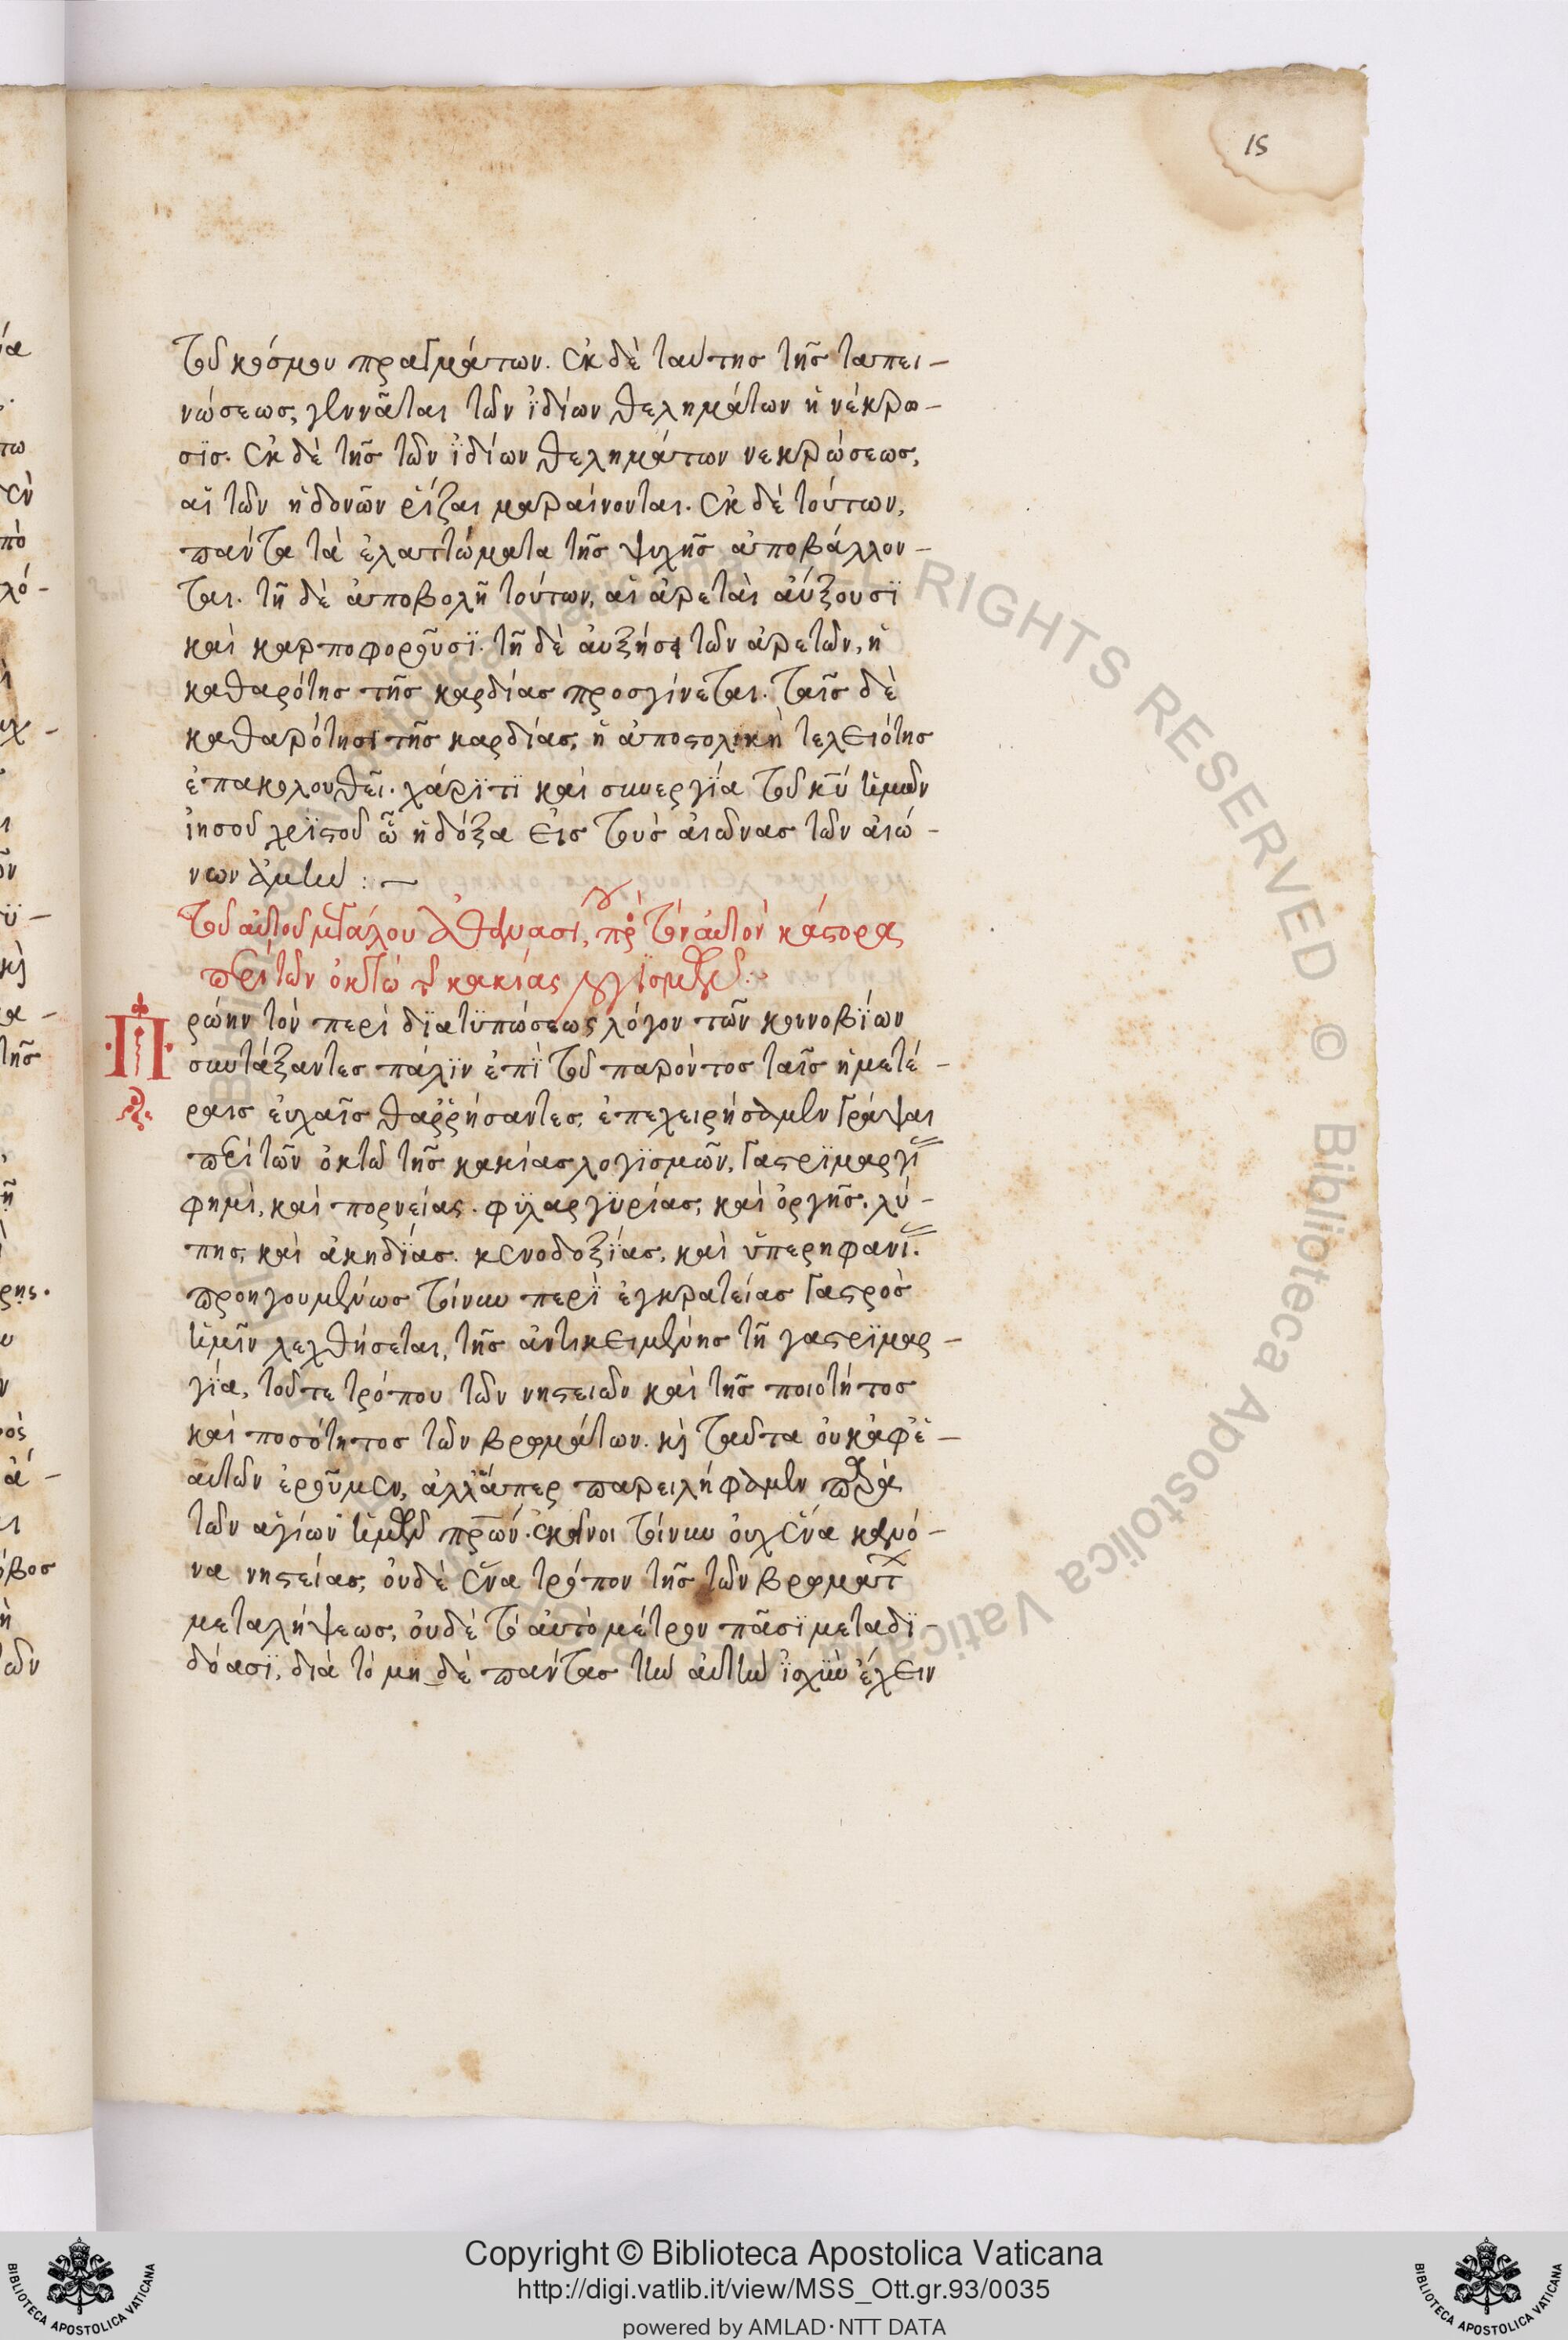 15
τοῦ κόσμου πραγμάτων. ἐκ δὲ ταύτης τῆς ταπει-
νώσεως, γεννᾶται τῶν ἰδίων θελημάτων ἡ νέκρω-
σϊς. ἐκ δὲ τῆς τῶν ἰδίων θελημάτων νεκρώσεως,
αἱ τῶν ἡδονῶν ῥίζαι μαραίνονται. ἐκ δὲ τούτων,
πάντα τὰ ἐλαττώματα τῆς ψυχῆς ἀποβάλλον-
ται. τῆ δὲ ἀποβολῆ τούτων, αἱ ἀρεταὶ ἀύξουσϊ
καὶ καρποφοροῦσϊ. τῆ δὲ ἀυξήσει τῶν ἀρετῶν, ἡ
καθαρότης τῆς καρδίας προσγίνεται. ταῖς δὲ
καθαρότησι τῆς καρδίας, ἡ ἀποστολικὴ τελειότης
ἐπακολουθεῖ. χάρϊτϊ καὶ συνεργϊία τοῦ κυ ἡμῶν
ἰησοῦ χρϊστοῦ ὧ ἡ δόξα εἰς τοὺς ἀιῶνας τῶν ἀιώ-
νων ἀμήν : —
τοῦ αὐτοῦ μεγάλου ἀθανασι, πρὸ τὸν αὐτὸν κάστορα
περὶ τῶν ὀκτὼ τ κακίας λογϊσμῶν :
Πρώην τὸν περὶ δϊατϋπώσεως λόγον τῶν κοινοβΐων
συντάξαντες πάλϊν ἐπῒ τοῦ παρόντος ταῖς ἡμετέ-
ραις ἐυχαῖς θαῤῥήσαντες, ἐπεχειρήσαμεν γράψαι
περὶ τῶν ὀκτὼ τῆς κακίας λογϊσμῶν, γαστρϊμαργί
φημὶ, καὶ πορνείας. φϊλαργϋρίας, καὶ ὀργῆς. λύ-
πης, καὶ ἀκηδΐας. κενοδοξΐας, καὶ ὑπερηφανί.
προηγουμένως τοίνυν περῒ ἐγκρατείας γαστρὸς
ἡμῖν λεχθήσεται, τῆς ἀντικειμένης τῆ γαστρϊμαρ-
γία, τοῦτε τρόπου τῶν νηστειῶν καὶ τῆς ποιότητος
καὶ ποσότητος τῶν βρωμάτων. κὶ ταῦτα ὀυκ ἀφ' ἑ-
αυτῶν ἐροῦμεν, ἀλλ' ἅπερ παρειλήφαμεν παρὰ
τῶν ἁγίων ἡμῶν πρων. ἐκεῖνοι τοίνυν ὀυχ ἕνα κανό-
να νηστείας, ὀυδὲ ἕνα τρόπον τῆς τῶν βρωματ
μεταλήψεως, ὀυδὲ τὸ ἀυτὸ μέτρον πᾶσϊ μεταδϊ-
δόασϊ, διὰ τὸ μη_δὲ πάντας τὴν ἀυτὴν ἰσχϋν ἔχειν
Copyright © Biblioteca Apostolica Vaticana
http://digi.vatlib.it/view/MSS_Ott.gr.93/0035
powered by AMLAD·NTT DATA